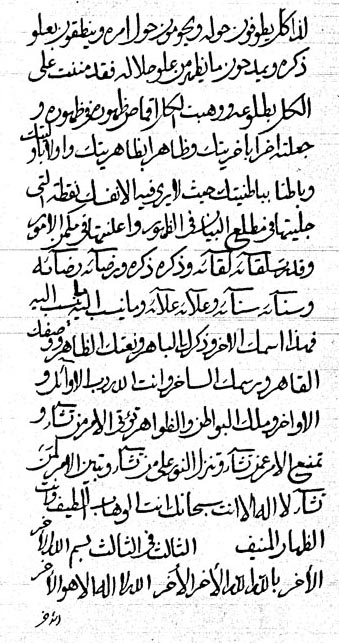 لذا كل يطوفون حوله ويحومون حول امره وينطقون بعلو
ذكره ويمدحون ما يظهر من علو جلاله فقد مننت على
الكل بطلوعه ووهبت الكل اقماص ظهورك في ظهوره و
جعلته اخرا باخريتك وظاهرا بظاهريتك واولا باوليتك
وباطنا بباطنيتك حيث لا يرى فيه الا نفسك نقطة التي
جليتها في مطلع البيان في الظهور واعلنتها في مكمن الامور
وقلت لقائه لقائه وذكره ذكره ورضائه رضائه
وسنائه سنائه وعلائه علائه وما ينسب اليه ينسب اليه
فهذا اسمك الاخر وذكرك الباهر ونعتك الظاهر ووصفك
القاهر ورسمك الساخر وانت الله رب الاوائل و
الاواخر ومليك البواطن والظواهر تؤتي الامر من تشاء و
تمنع الامر عن تشاء وتنزل النور على من تشاء وتبين الامر لمن
تشاء لا اله الا انت سبحانك انت الوهاب اللطيف وانت
الظهار المنيف الثالث في الثالث بسم الله الاخر
الأخر بالله الله الأخر الأخر الله لا اله الا هو الأخر
الأخر